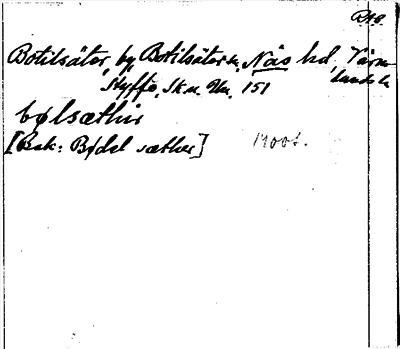 Botilsäter, by Botilsäter sn, Näs hd, Värm-
lands l.
Styffe, Sk.u. Un. 151
bølsæthir
[Bak: Bødel sæther] 1400t.